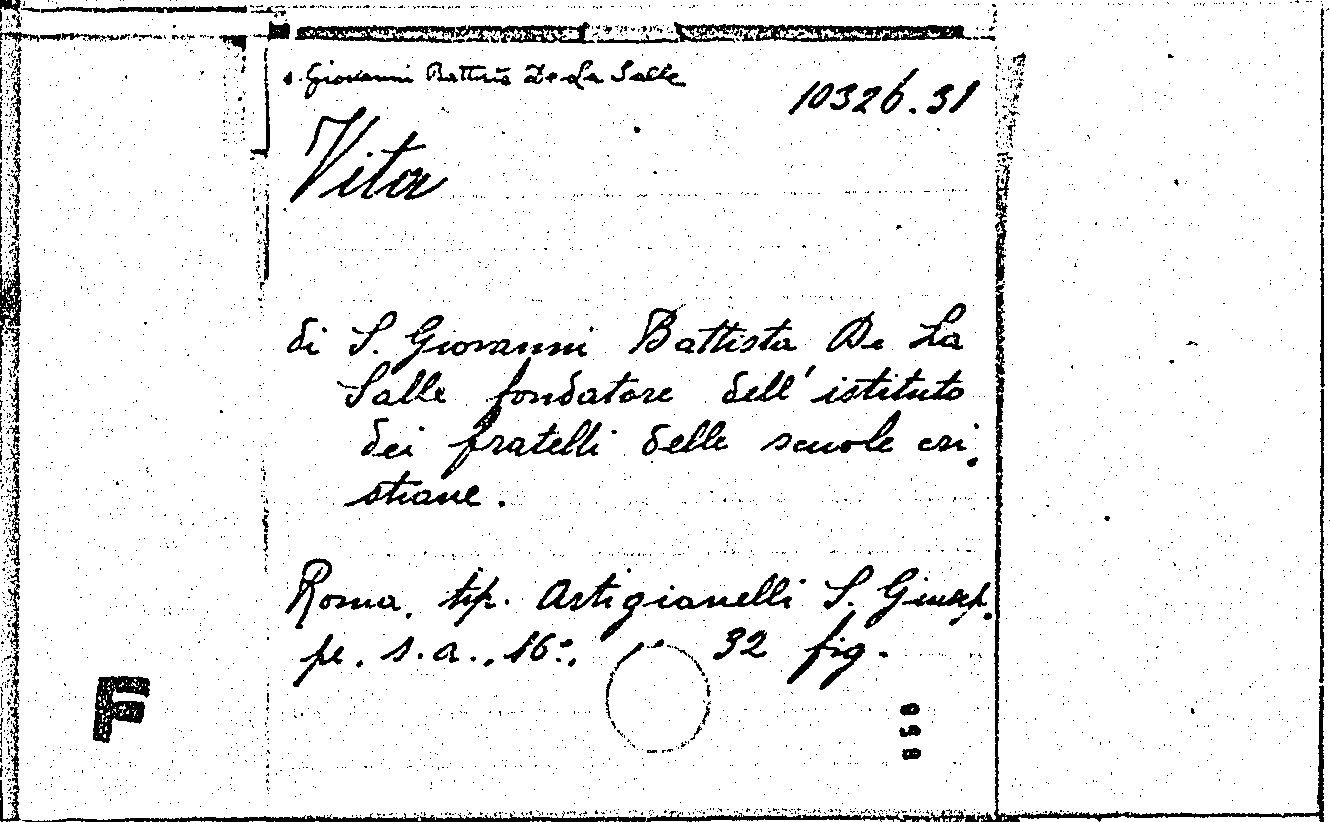 s. Giovanni Battista De La Salle
10326.31
Vita
di S. Giovanni Battista De La
Salle fondatore dell'istituto
dei fratelli delle scuole cri-
stiane.
Roma, tip. Artigianelli S. Giusep-
pe, s.a., 16°, 32 fig.
F
058